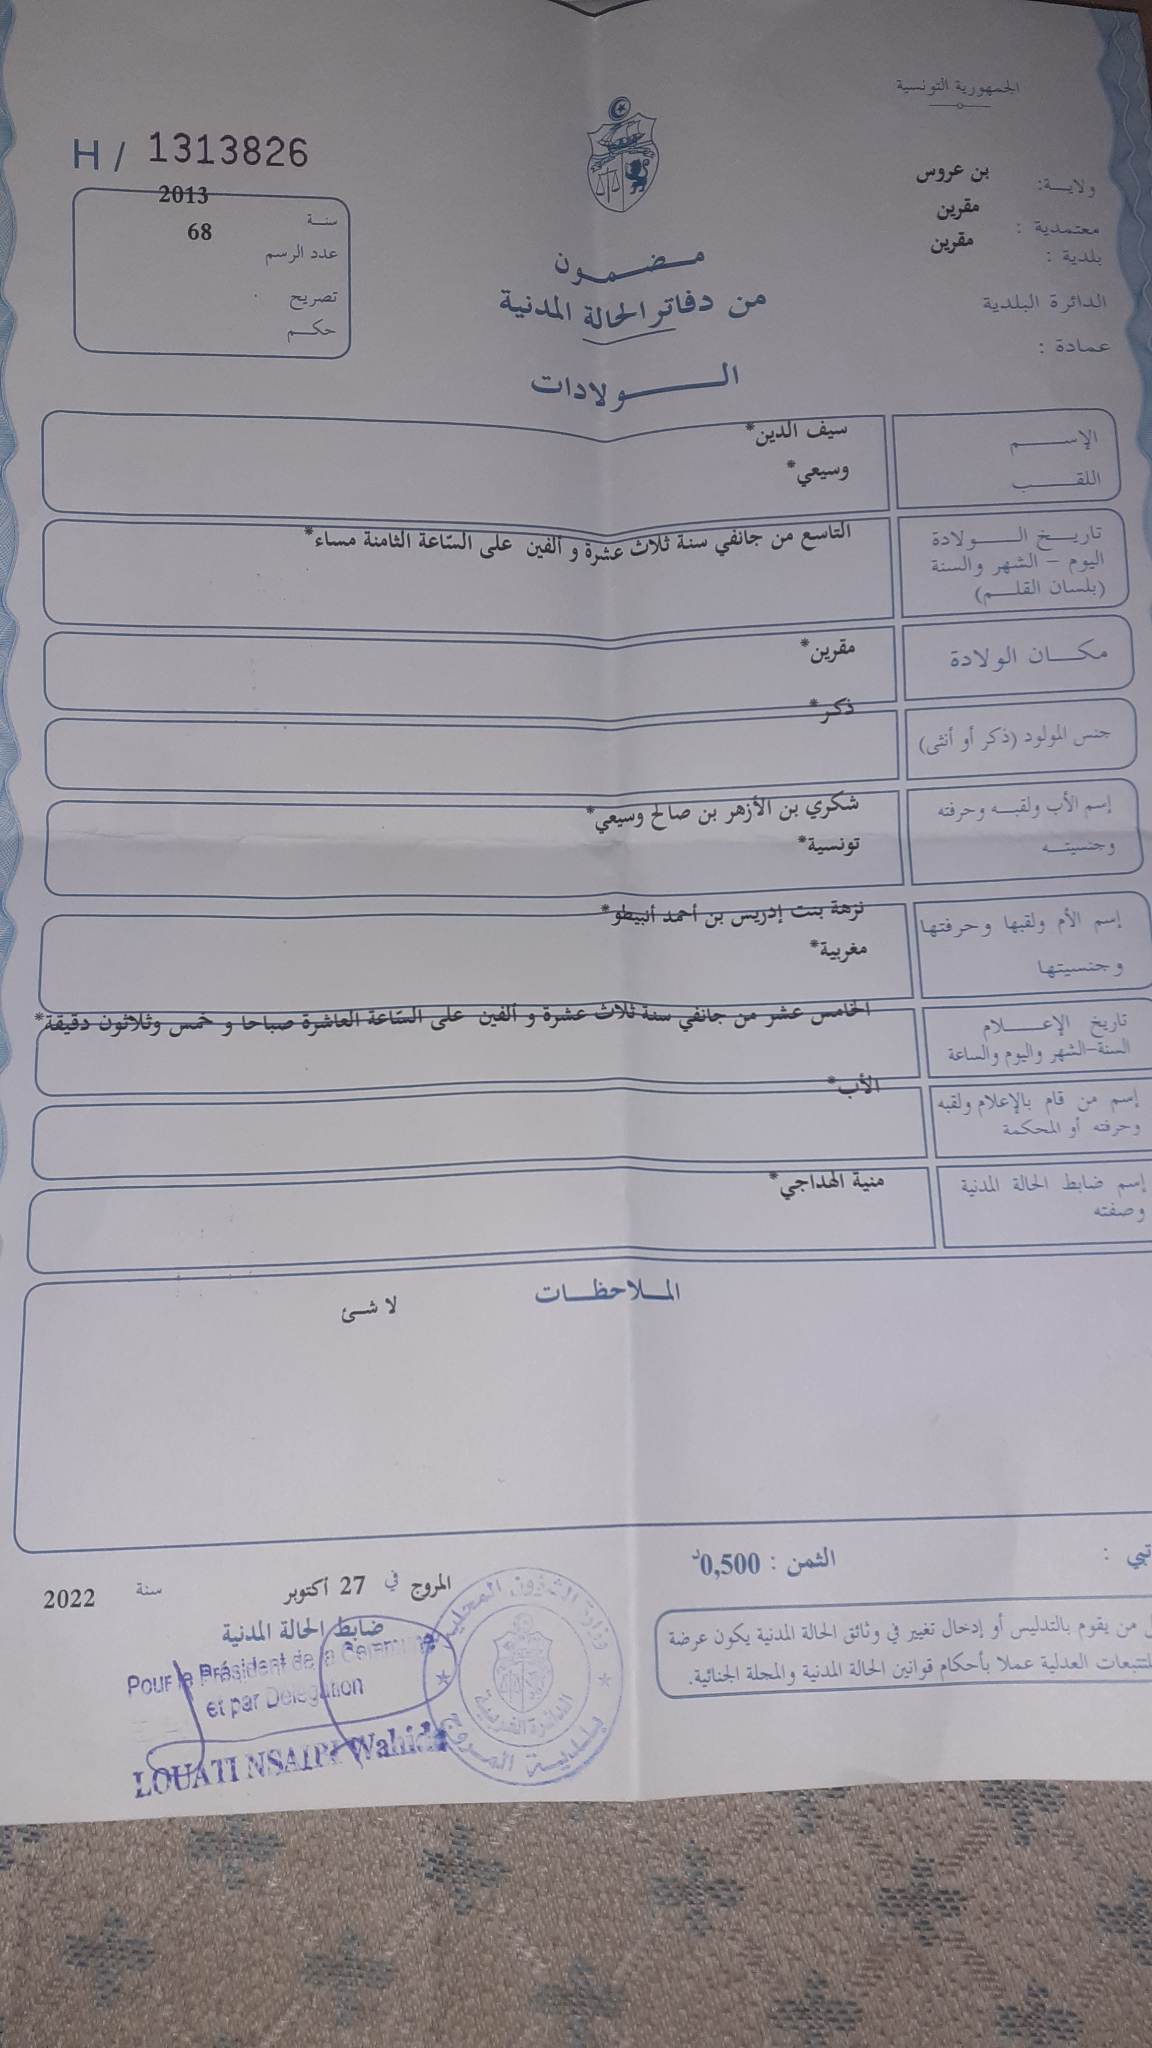 الجمهورية التونسية
H / 1313826
ولاية: بن عروس
معتمدية : مقرين
بلدية : مقرين
الدائرة البلدية
عمادة :
سنة 2013
عدد الرسم 68
تصريح
حكم
مضمون
من دفاتر الحالة المدنية
الولادات
الإسم سيف الدين*
اللقب وسيعي*
تاريخ الولادة التاسع من جانفي سنة ثلاث عشرة و ألفين على السّاعة الثامنة مساء*
اليوم - الشهر والسنة
(بلسان القلم)
مكان الولادة مقرين*
ذكر*
جنس المولود (ذكر أو أنثى)
إسم الأب ولقبه وحرفته شكري بن الأزهر بن صالح وسيعي*
وجنسيته تونسية*
إسم الأم ولقبها وحرفتها نزهة بنت إدريس بن أحمد أنبيطو*
وجنسيتها مغربية*
تاريخ الإعلام الخامس عشر من جانفي سنة ثلاث عشرة و ألفين على السّاعة العاشرة صباحا و خمس وثلاثون دقيقة*
السنة-الشهر واليوم والساعة
الأب*
إسم من قام بالإعلام ولقبه
وحرفته أو المحكمة
إسم ضابط الحالة المدنية منية الهداجي*
وصفته
الملاحظات
لا شئ
الثمن : 0,500د
المروج في 27 أكتوبر سنة 2022
ضابط الحالة المدنية
Pour le Président de la Commune
et par Délégation
LOUATI NSAIRI Wahida
وزارة الشؤون المحلية
الدائرة الفرعية
بلدية المروج
من يقوم بالتدليس أو إدخال تغيير في وثائق الحالة المدنية يكون عرضة
للتتبعات العدلية عملا بأحكام قوانين الحالة المدنية والمجلة الجنائية.